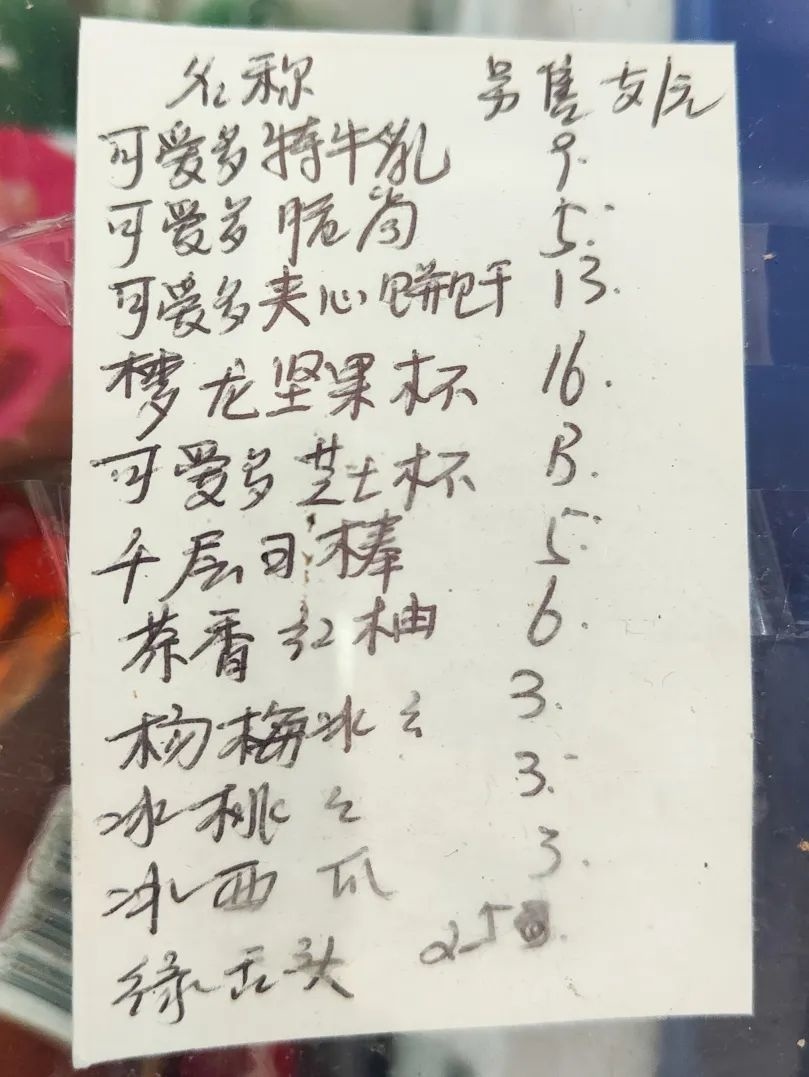 名称 另售 支/元
可爱多特牛乳 9.
可爱多脆筒 5.
可爱多夹心饼干 13.
梦龙坚果杯 16.
可爱多芝士杯 13.
千层日棒 5.
茶香红柚 6.
杨梅冰 3.
冰桃 3.
冰西瓜 3.
绿舌头 2.5